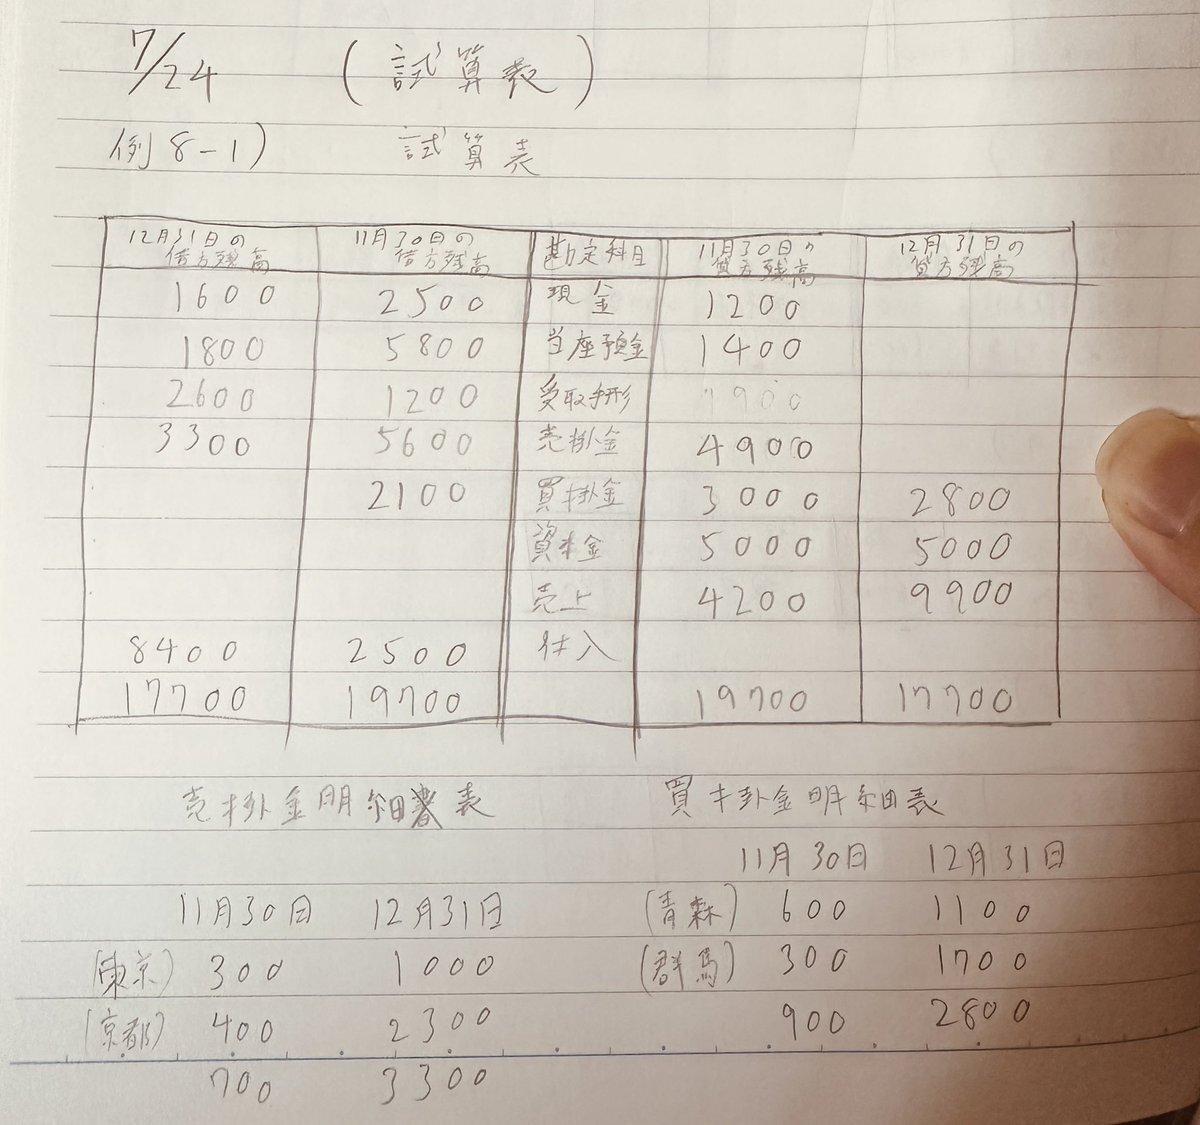 7/24 (試算表)
例8-1) 試算表
12月31日の借方残高 11月30日の借方残高 勘定科目 11月30日の貸方残高 12月31日の貸方残高
1600 2500 現金 1200
1800 5800 当座預金 1400
2600 1200 受取手形
3300 5600 売掛金 4900
2100 買掛金 3000 2800
資本金 5000 5000
売上 4200 9900
8400 2500 仕入
17700 19700 19700 17700
売掛金明細表 買掛金明細表
11月30日 12月31日
11月30日 12月31日 (青森) 600 1100
(東京) 300 1000 (群馬) 300 1700
(京都) 400 2300 900 2800
700 3300